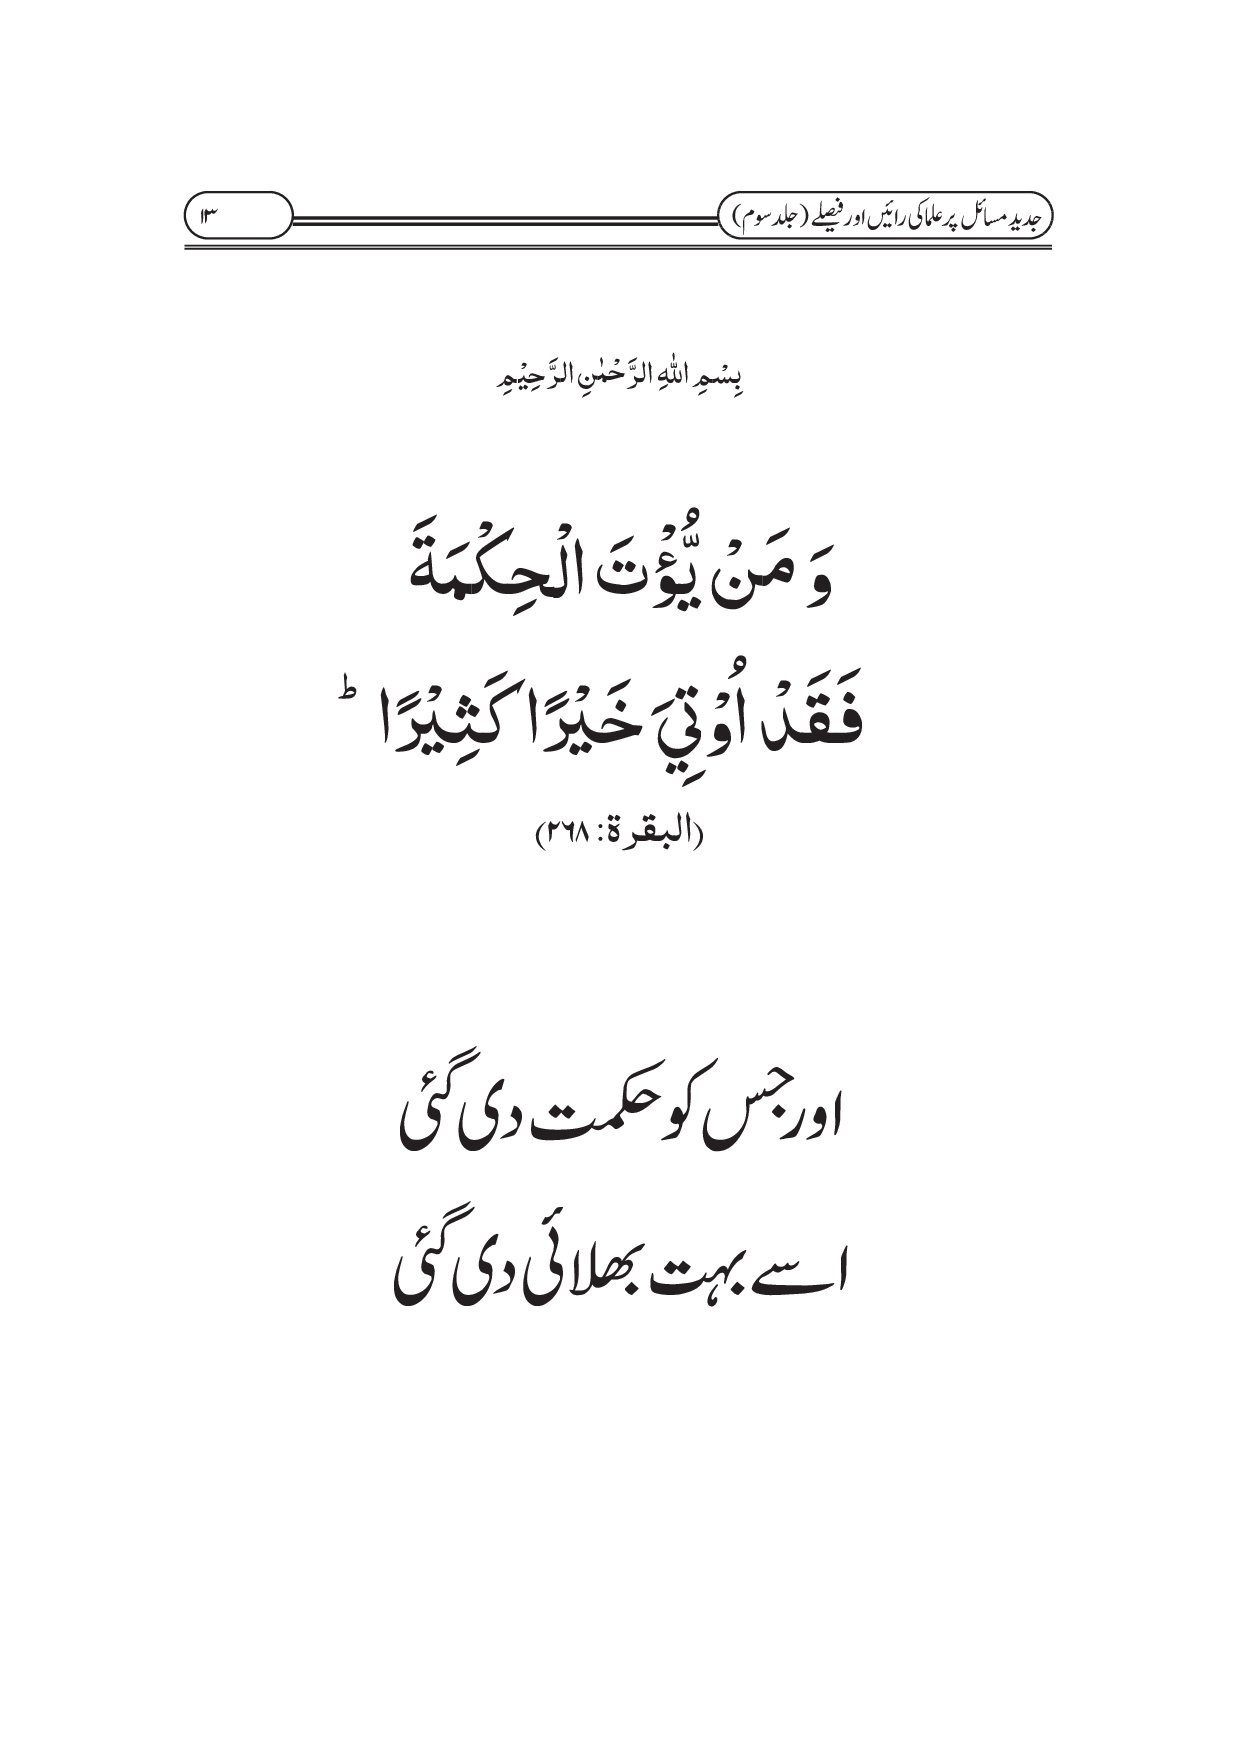 جدید مسائل پر علما کی رائیں اور فیصلے (جلد سوم) ۱۳
بِسْمِ اللهِ الرَّحْمٰنِ الرَّحِيْمِ
وَ مَنْ يُّؤْتَ الْحِكْمَةَ
فَقَدْ اُوْتِيَ خَيْرًا كَثِيْرًا ؕ
(البقرة: ۲۶۸)
اور جس کو حکمت دی گئی
اسے بہت بھلائی دی گئی